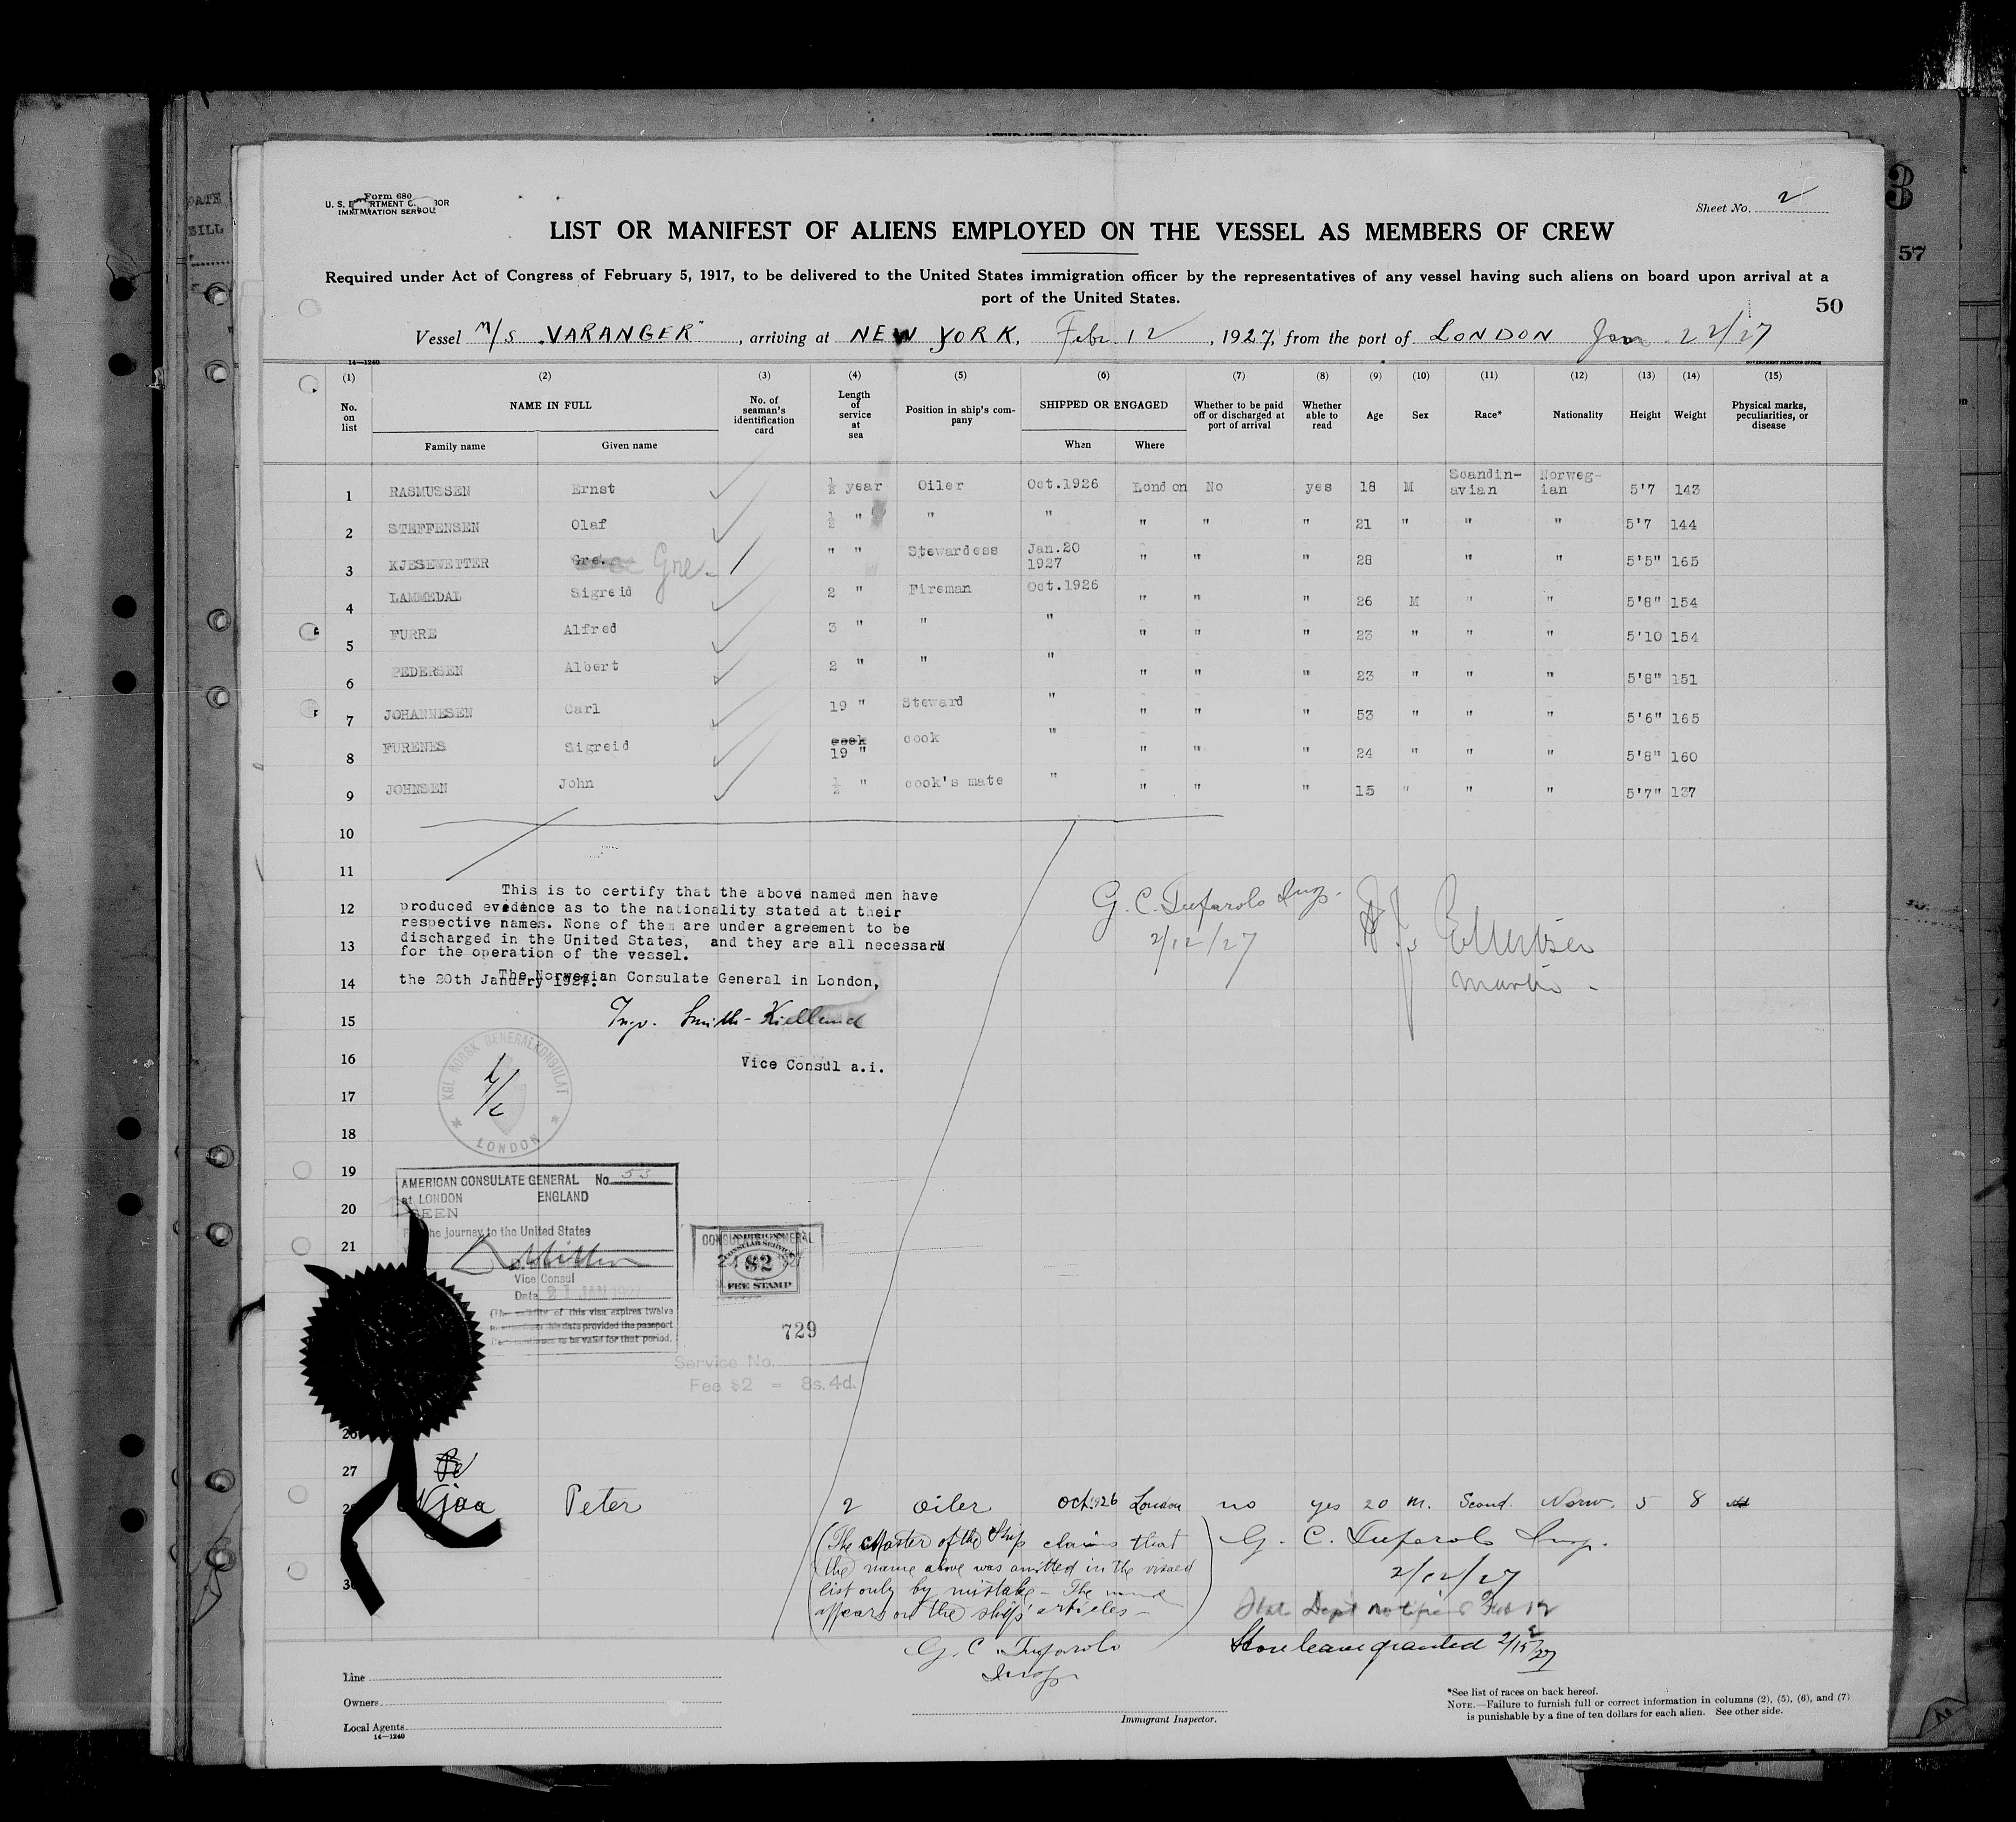 Form 680
IMMIGRATION SERVICE
Sheet No. 2
LIST OR MANIFEST OF ALIENS EMPLOYED ON THE VESSEL AS MEMBERS OF CREW
Required under Act of Congress of February 5, 1917, to be delivered to the United States immigration officer by the representatives of any vessel having such aliens on board upon arrival at a
port of the United States.
50
57
Vessel M/S "VARANGER", arriving at NEW YORK, Febr. 12, 1927, from the port of LONDON Jan. 22/27
14—1240 GOVERNMENT PRINTING OFFICE
(1) (2) (3) (4) (5) (6) (7) (8) (9) (10) (11) (12) (13) (14) (15)
No. on list NAME IN FULL No. of seaman's identification card Length of service at sea Position in ship's company SHIPPED OR ENGAGED Whether to be paid off or discharged at port of arrival Whether able to read Age Sex Race* Nationality Height Weight Physical marks, peculiarities, or disease
Family name Given name When Where
1 RASMUSSEN Ernst ½ year Oiler Oct.1926 London No yes 18 M Scandin-avian Norweg-ian 5'7 143
2 STEFFENSEN Olaf ½ " " " " " " 21 " " " 5'7 144
3 KJESEWETTER Gre. Gre. " " Stewardess Jan.20 1927 " " " 28 " " 5'5" 165
4 LAMMEDAL Sigreid 2 " Fireman Oct.1926 " " " 26 M " " 5'8" 154
5 FURRE Alfred 3 " " " " " " 23 " " " 5'10 154
6 PEDERSEN Albert 2 " " " " " " 23 " " " 5'8" 151
7 JOHANNESEN Carl 19 " Steward " " " " 53 " " " 5'6" 165
8 FURENES Sigreid cook 19 " cook " " " " 24 " " " 5'8" 160
9 JOHNSEN John ½ " cook's mate " " " " 15 " " " 5'7" 137
10
11
12
13
14
15
16
17
18
19
20
21
This is to certify that the above named men have
produced evidence as to the nationality stated at their
respective names. None of them are under agreement to be
discharged in the United States, and they are all necessary
for the operation of the vessel.
The Norwegian Consulate General in London,
the 20th January 1927.
G. C. Tufarolo Insp.
2/12/27
Ingv. Smith-Kielland
Vice Consul a.i.
KGL NORSK GENERALKONSULAT
LONDON
AMERICAN CONSULATE GENERAL No 53
at LONDON ENGLAND
SEEN
the journey to the United States
Vice Consul
Date 21 JAN 1927
of this visa expires twelve
date provided the passport
to be valid for that period.
CONSULATE GENERAL
AMERICAN
CONSULAR SERVICE
$2
FEE STAMP
729
Service No.
Fee $2 = 8s.4d.
26
27
Njaa Peter 2 oiler Oct.1926 London no yes 20 m. Scand. Norw. 5 8
(The Master of the Ship claims that
the name above was omitted in the visaed
list only by mistake - The name
appears on the ship's articles -)
G. C. Tufarolo
Insp
G. C. Tufarolo Insp.
2/12/27
State Dept notified Feb 12
Shore leave granted 2/15/27
Line
Owners
Local Agents
14—1240
Immigrant Inspector.
*See list of races on back hereof.
NOTE.—Failure to furnish full or correct information in columns (2), (5), (6), and (7)
is punishable by a fine of ten dollars for each alien. See other side.